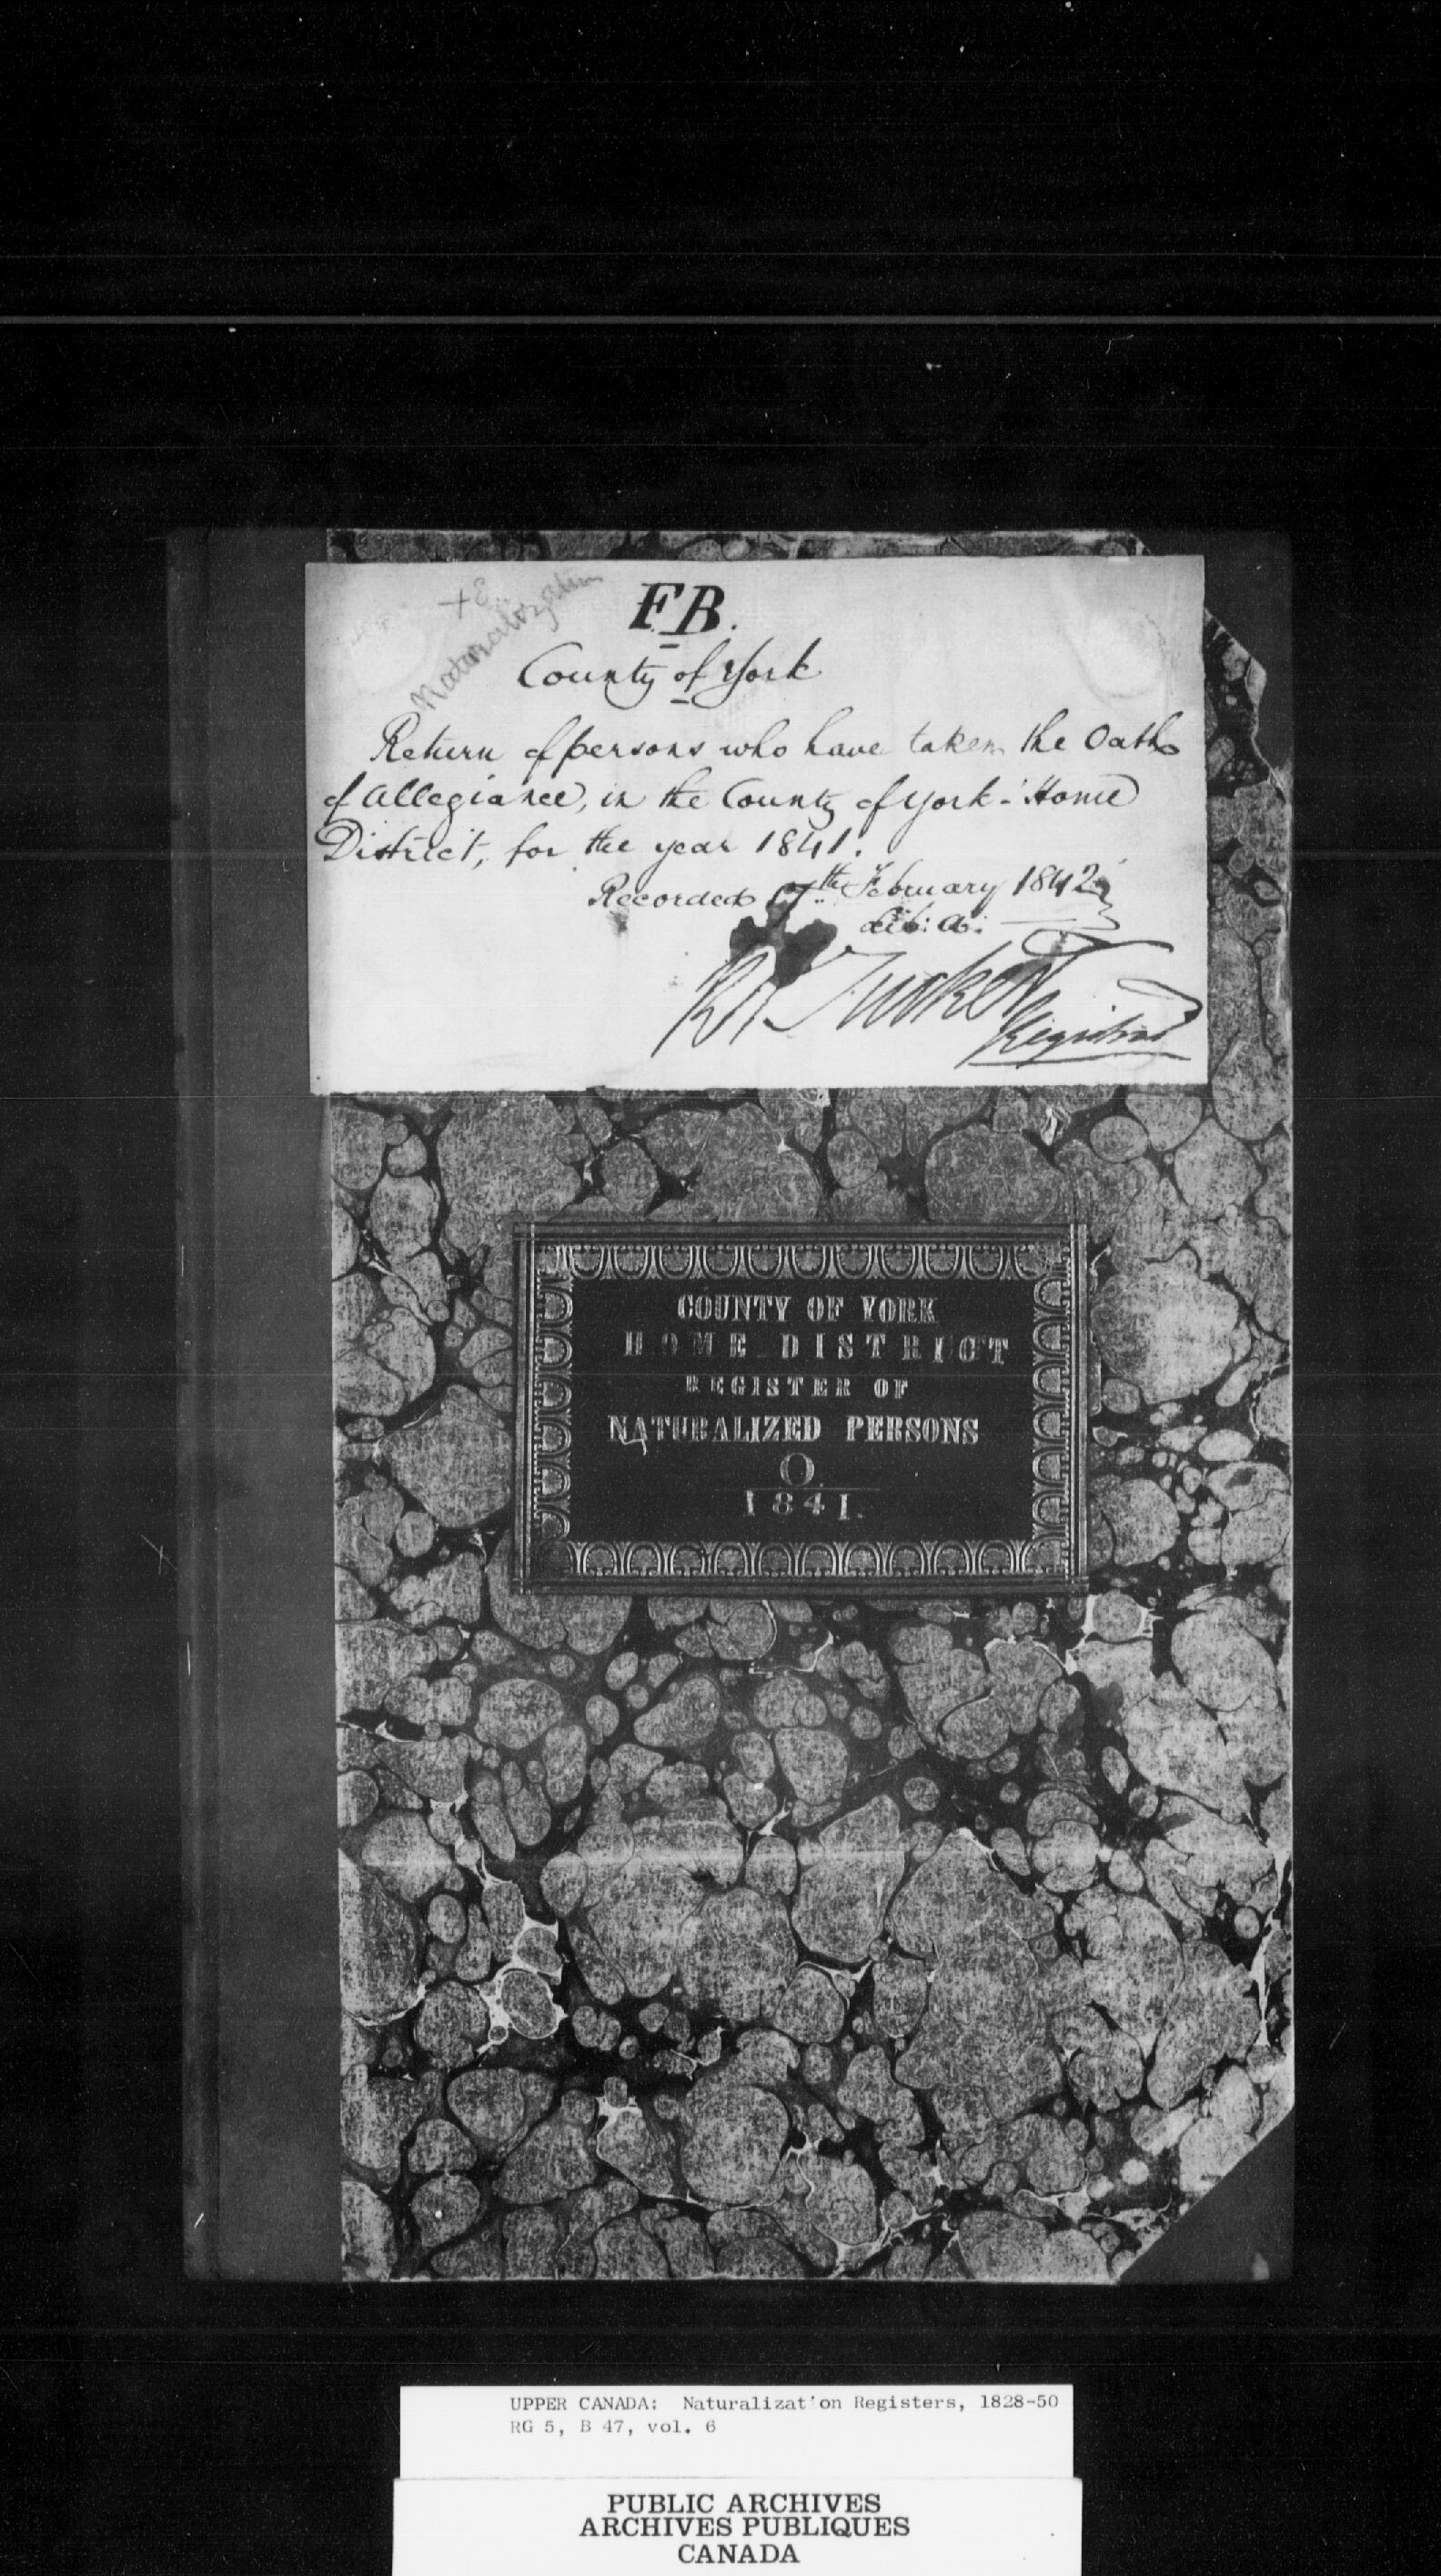 Naturalization
F.B.
County of York
Return of persons who have taken the Oath
of Allegiance, in the County of York - Home
District, for the year 1841.
Recorded February 1842
Lib: A:
Registrar
COUNTY OF YORK
HOME DISTRICT
REGISTER OF
NATURALIZED PERSONS
O.
1841.
UPPER CANADA: Naturalizat'on Registers, 1828-50
RG 5, B 47, vol. 6
PUBLIC ARCHIVES
ARCHIVES PUBLIQUES
CANADA